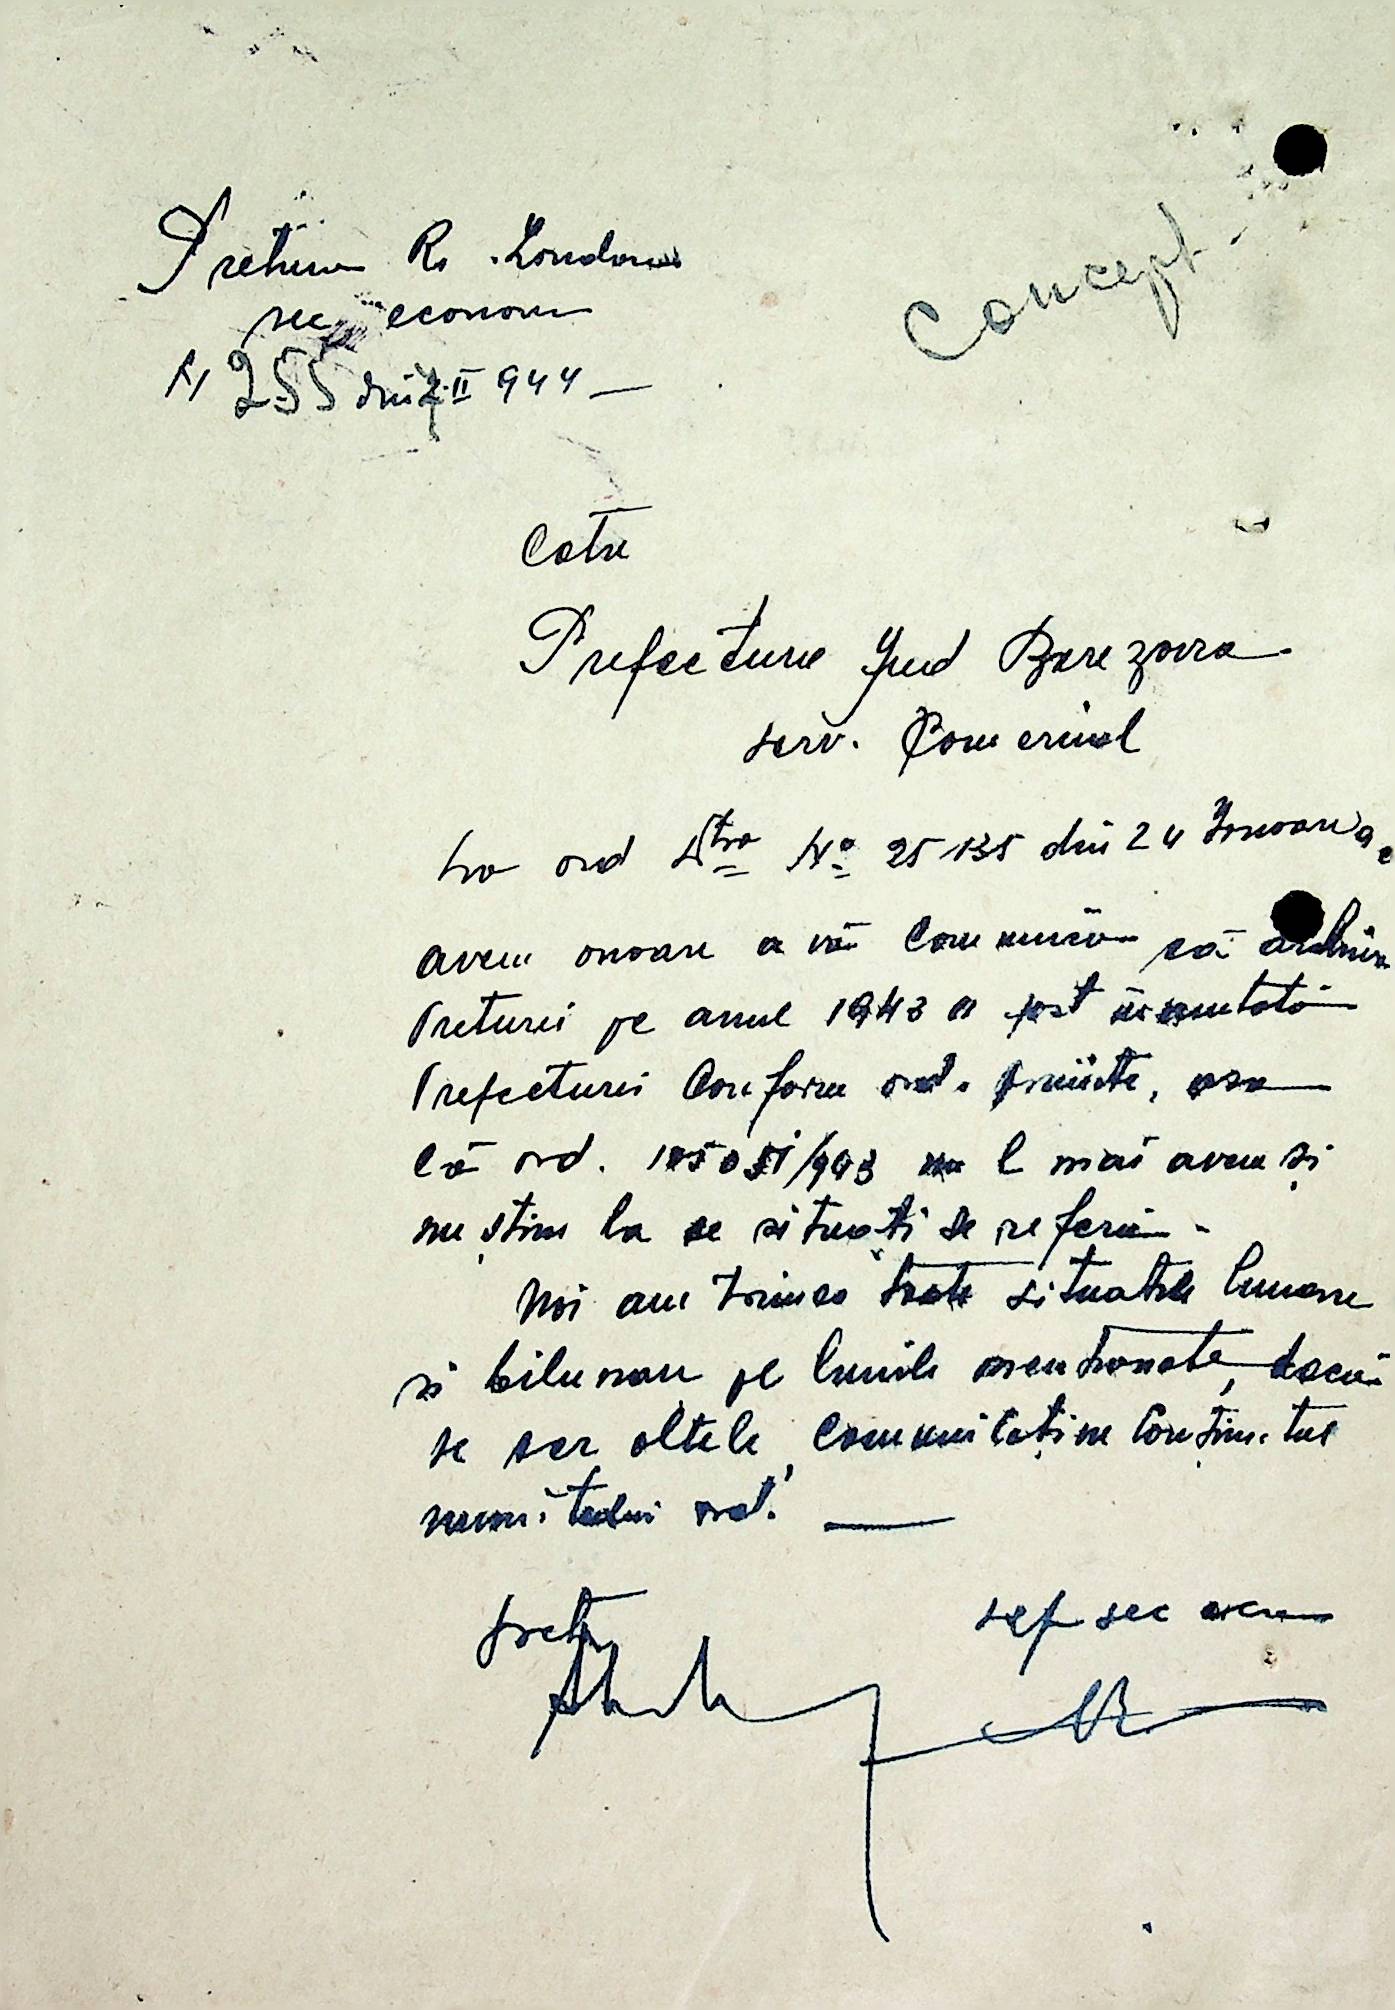 Pretura R. Landau
sec. econom
Concept
N 255 din 7.II 944 —
Catre
Prefectura Jud Berezovca
serv. Comercial
La ord Dtra No 25135 din 24 Ianuarie a.c
avem onoare a vă comunica că arhiva
Preturei pe anul 1943 a fost inaintată
Prefecturei Conform ord. primite, asa
că ord. /943 nu l mai avem și
nu știm la ce situați se referă -
Noi am trimes toate situatile lunare
si bilunare pe lunile mentionate, daca
se cer altele, comunicați-ne conținutul
numitului ord. —
pretor
sef sec econ